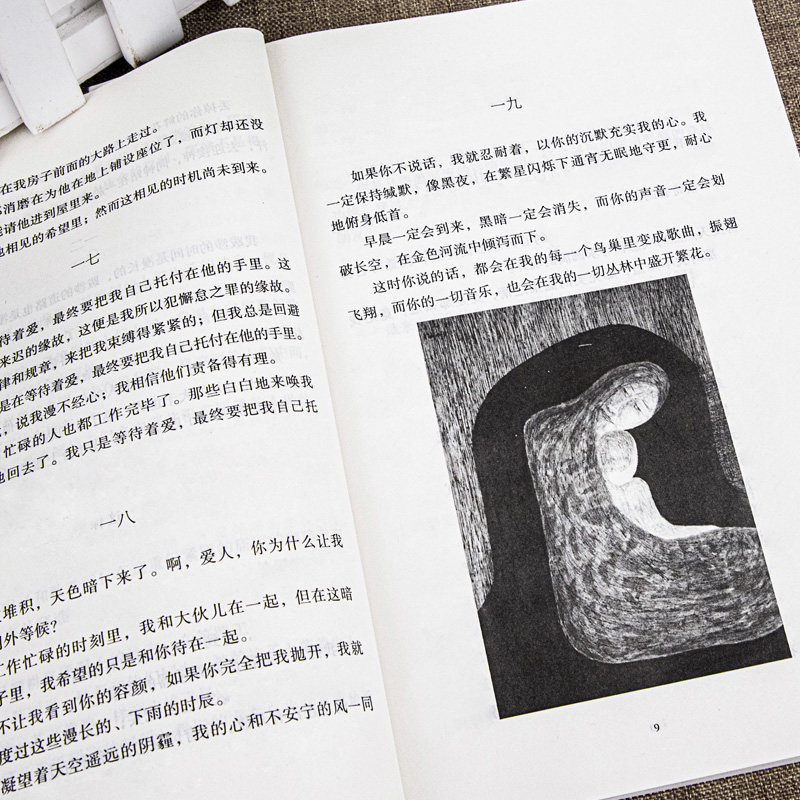 在我房子前面的大路上走过。
消磨在为他在地上铺设座位了，而灯却还没
请他进到屋里来。
相见的希望里；然而这相见的时机尚未到来。
一七
待着爱，最终要把我自己托付在他的手里。这
来迟的缘故，这便是我所以犯懈怠之罪的缘故。
律和规章，来把我束缚得紧紧的；但我总是回避
是在等待着爱，最终要把我自己托付在他的手里。
，说我漫不经心；我相信他们责备得有理。
忙碌的人也都工作完毕了。那些白白地来唤我
地回去了。我只是等待着爱，最终要把我自己托
一八
堆积，天色暗下来了。啊，爱人，你为什么让我
外等候？
工作忙碌的时刻里，我和大伙儿在一起，但在这暗
子里，我希望的只是和你待在一起。
不让我看到你的容颜，如果你完全把我抛开，我就
度过这些漫长的、下雨的时辰。
凝望着天空遥远的阴霾，我的心和不安宁的风一同
一九
如果你不说话，我就忍耐着，以你的沉默充实我的心。我
一定保持缄默，像黑夜，在繁星闪烁下通宵无眠地守更，耐心
地俯身低首。
早晨一定会到来，黑暗一定会消失，而你的声音一定会划
破长空，在金色河流中倾泻而下。
这时你说的话，都会在我的每一个鸟巢里变成歌曲，振翅
飞翔，而你的一切音乐，也会在我的一切丛林中盛开繁花。
9